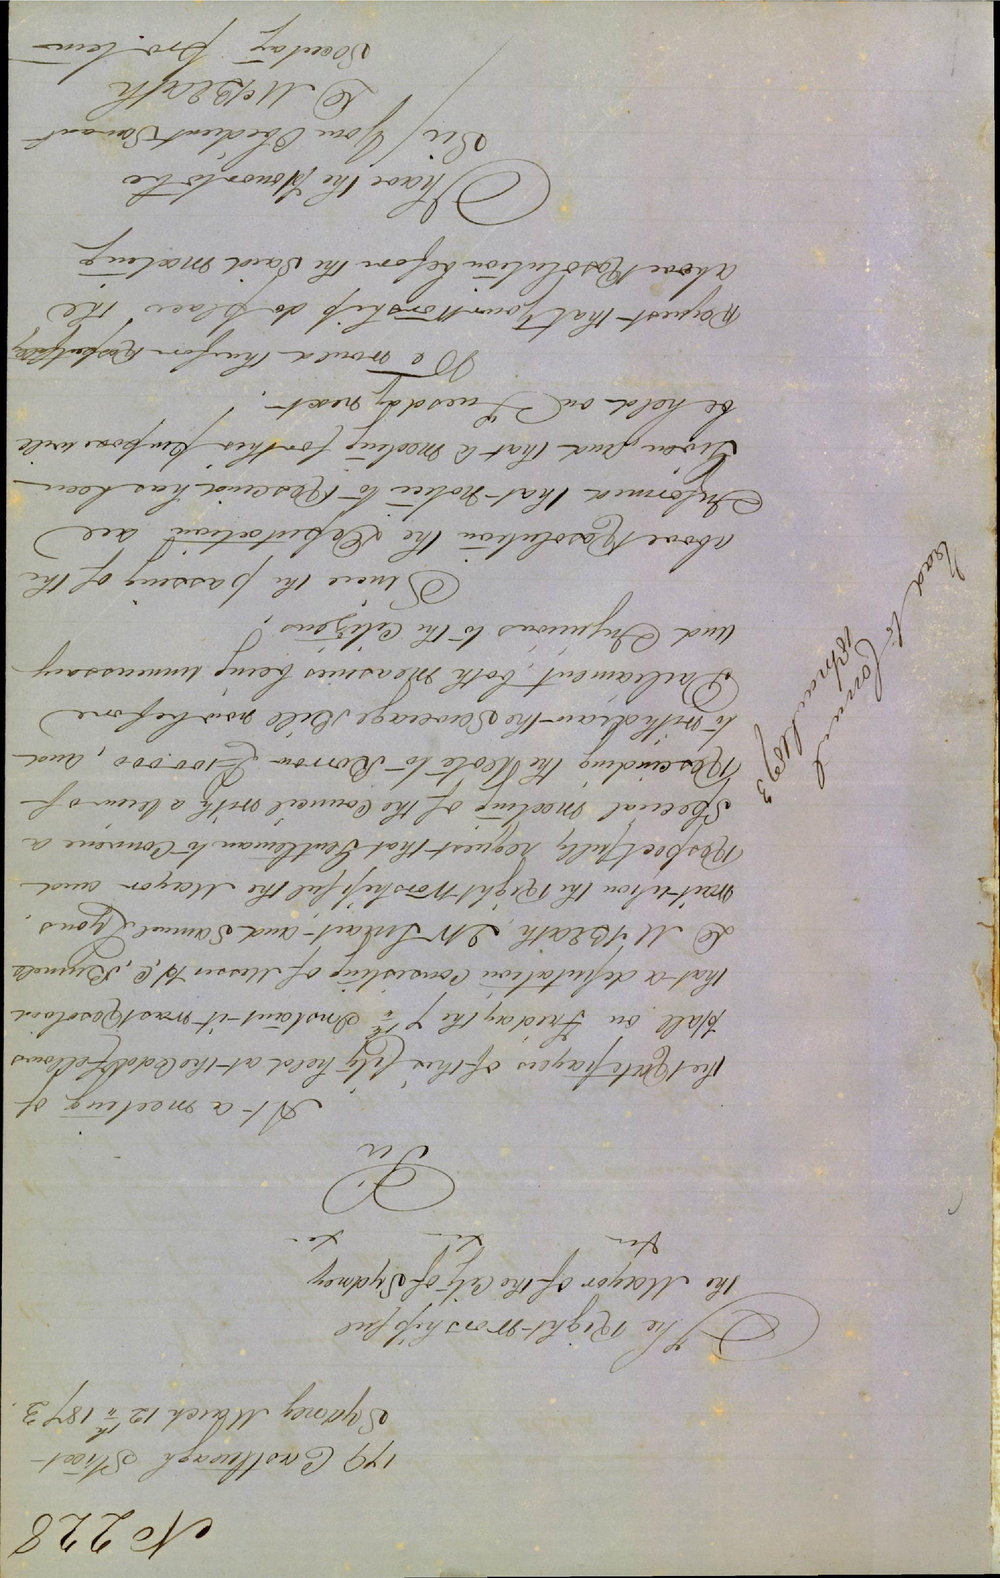 No 228
179 Castlereagh Street
Sydney March 12th 1873
The Right Worshipful
The Mayor of the City of Sydney
&c &c &c
Sir
At a meeting of
the Ratepayers of this City held at the Oddfellows
Hall on Friday the 7th Instant it was Resolved
that a deputation Consisting of Messrs
D McBeath, and Samuel Lyons,
wait upon the Right Worshipful the Mayor and
Respectfully request that Gentleman to Convene a
Special meeting of the Council with a view of
Rescinding the Vote to Borrow £100.000, and
to withdraw the Sewerage Bill now before
Parliament, both measures being unnecessary
and Injurious to the Citizens,
Since the passing of the
above Resolution the Deputation are
Informed that notice to Rescind has been
Given, and that a meeting for this purpose will
be held on Tuesday next.
We would therefore Respectfully
Request that your Worship do place the
above Resolution before the Said meeting
I have the Honor to be
Sir / Your Obedient Servant
D McBeath
Secretary pro tem
Read to Council
18 March 1873